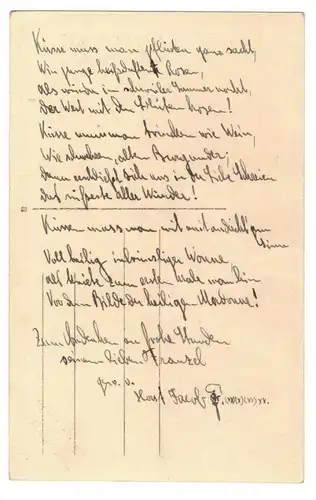 Küsse muss man pflücken ganz sacht,
Wie junge Rosen,
als würde in schwüler Sommernacht,
Der West mit den Blüten kosen!
Küsse muss man trinken wie Wein,
Wie schweren, alten Burgunder;
dann erschließt sich uns in der Seele Schrein
das süsseste aller Wunder!
Küssen muss man mit andächt'gem
Sinne
Voll heilig inbrünstiger Wonne,
als kniete zum ersten Male man hin
Vor dem Bilde der heiligen Madonne!
Zum Gedenken an frohe Stunden
seinem lieben Franzel
gew. v.
Horst Jacob